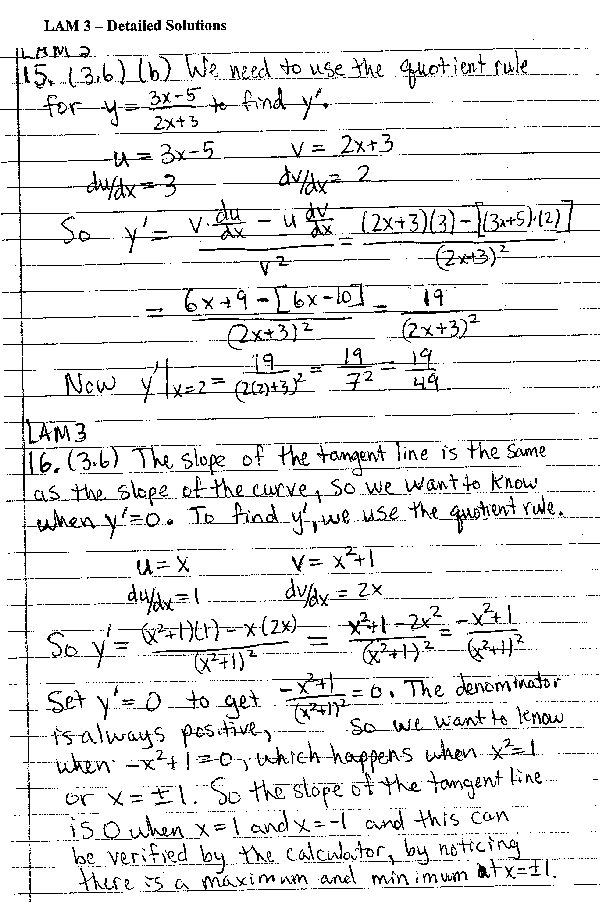 LAM 3 – Detailed Solutions
LAM 2
15. (3.6) (b) We need to use the quotient rule
for y = (3x-5)/(2x+3) to find y'.
u = 3x-5 v = 2x+3
du/dx = 3 dv/dx = 2
So y' = (v·du/dx - u dv/dx)/v² = ((2x+3)(3) - [(3x+5)·(2)])/(2x+3)²
= (6x+9-[6x-10])/(2x+3)² = 19/(2x+3)²
Now y'|x=2 = 19/(2(2)+3)² = 19/7² = 19/49
LAM 3
16. (3.6) The slope of the tangent line is the same
as the slope of the curve, so we want to know
when y'=0. To find y', we use the quotient rule.
u = x v = x²+1
du/dx = 1 dv/dx = 2x
So y' = ((x²+1)(1) - x(2x))/(x²+1)² = (x²+1-2x²)/(x²+1)² = (-x²+1)/(x²+1)²
Set y' = 0 to get (-x²+1)/(x²+1)² = 0. The denominator
is always positive, so we want to know
when -x²+1=0, which happens when x²=1
or x = ±1. So the slope of the tangent line
is 0 when x=1 and x=-1 and this can
be verified by the calculator, by noticing
there is a maximum and minimum at x=±1.